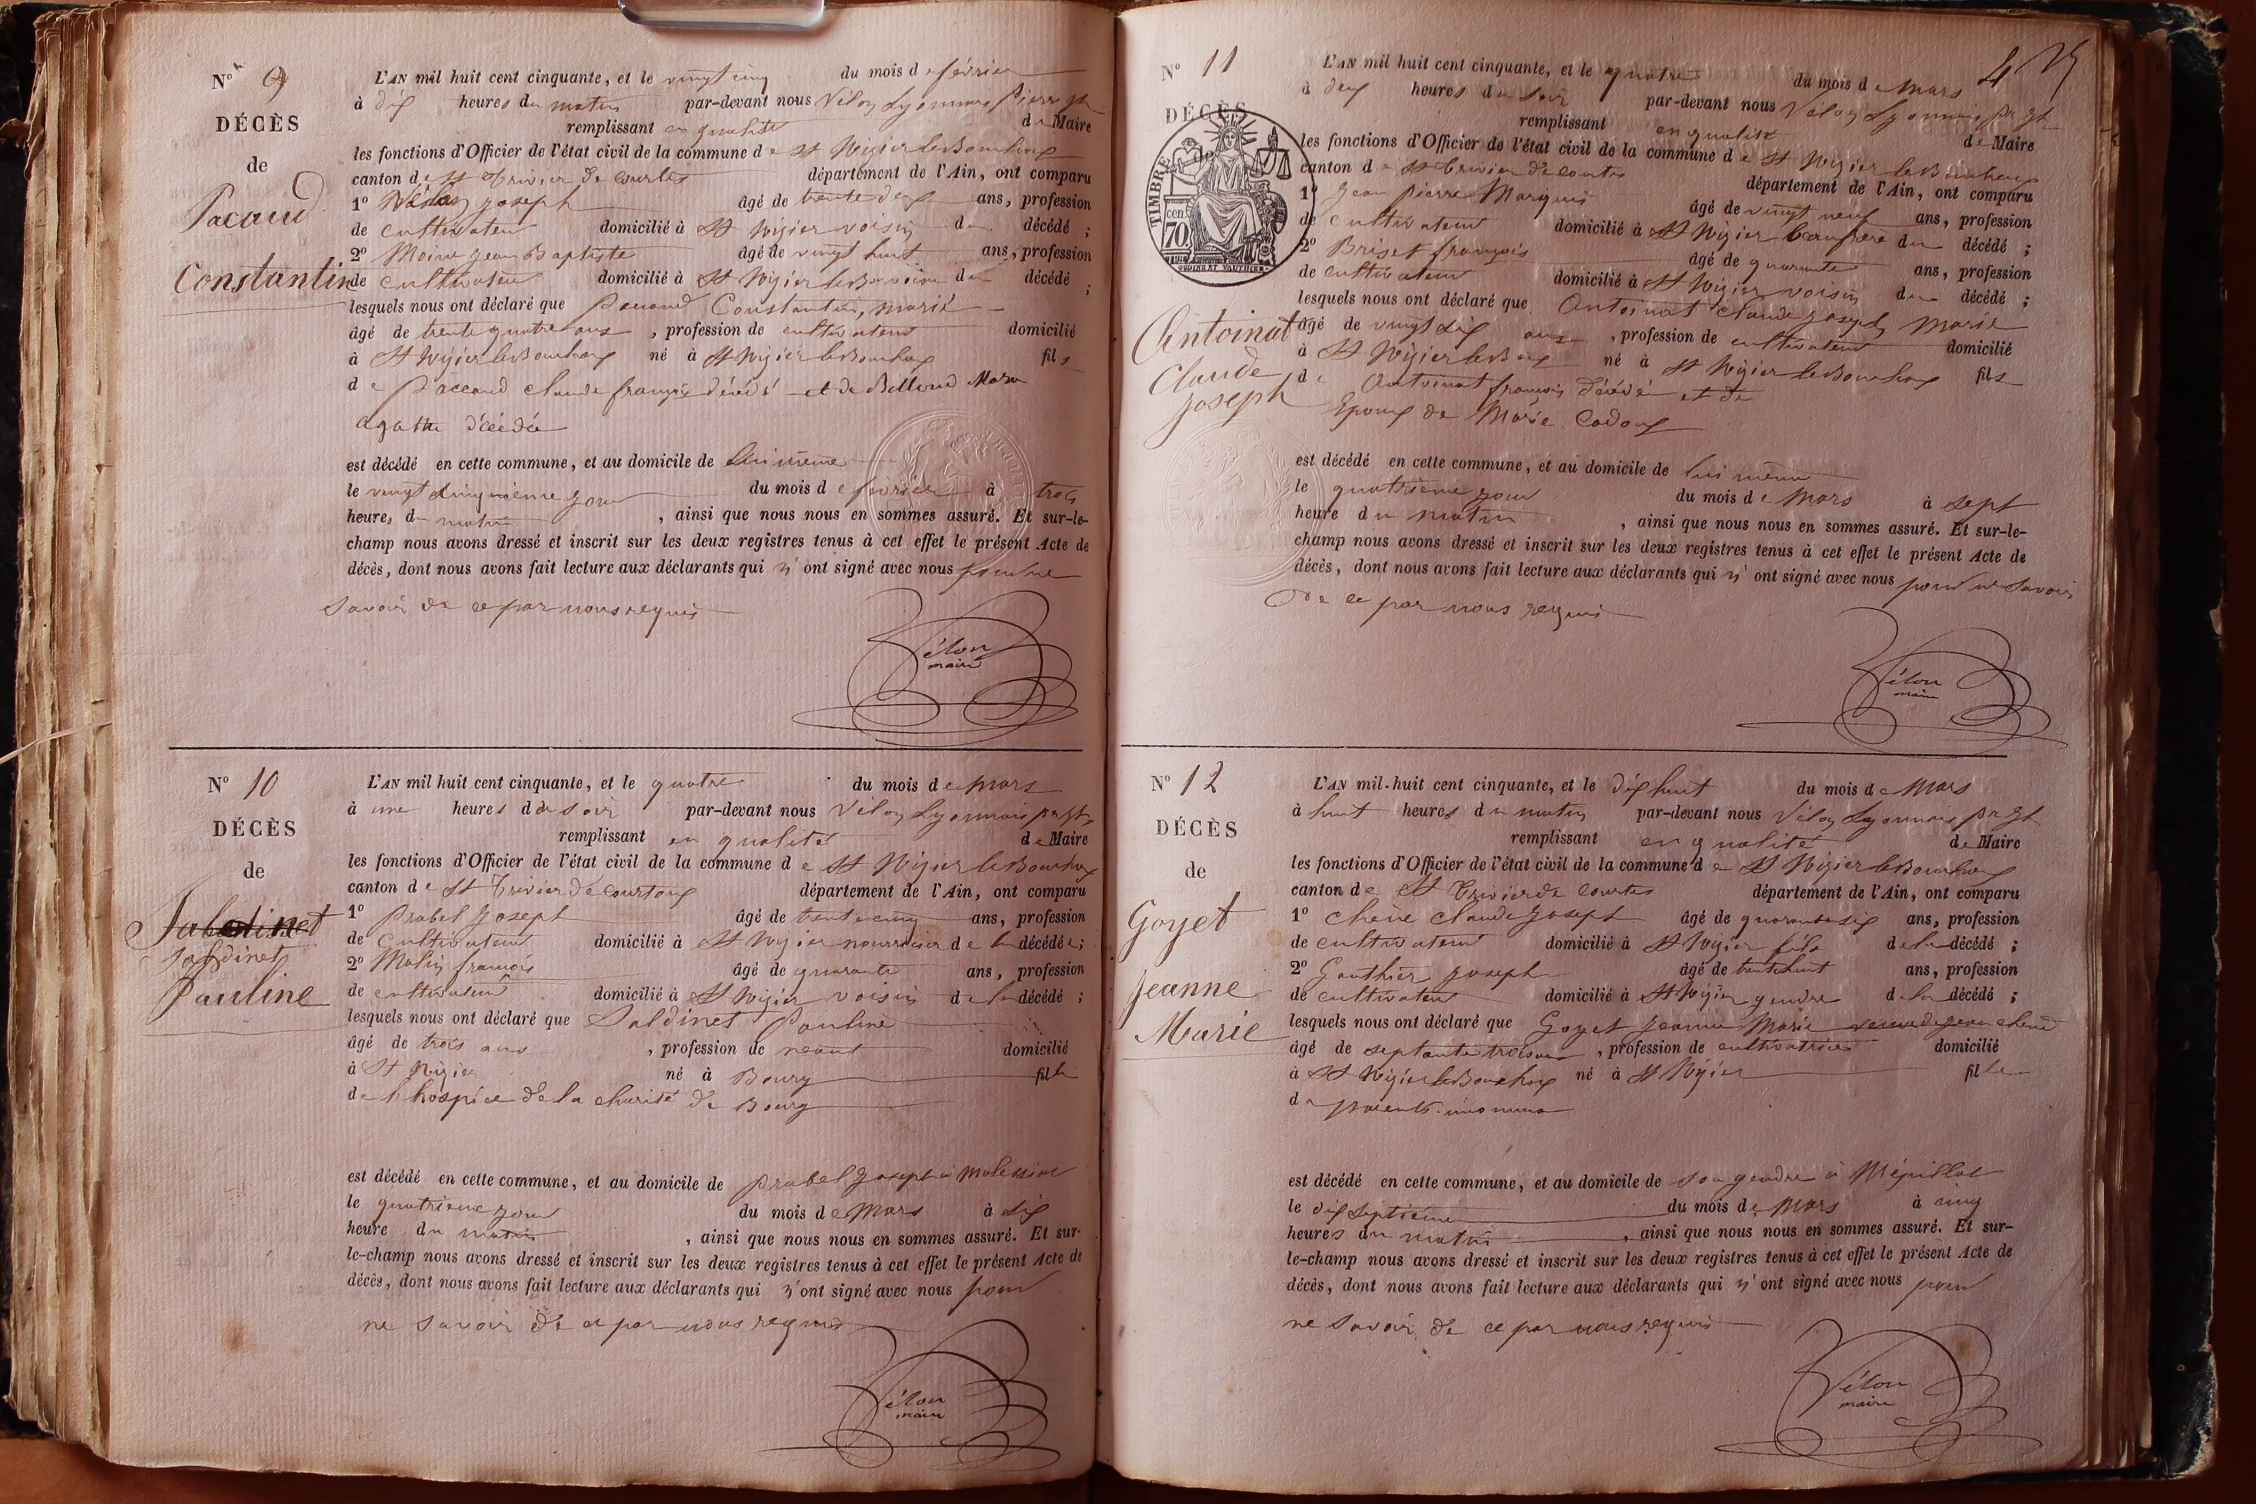 N° 9
DÉCÈS
de
Pacaud
Constantin
L'AN mil huit cent cinquante, et le vingt cinq du mois de février
à dix heures du matin par-devant nous Vélon Lyonnais Pierre
remplissant en qualité de Maire
les fonctions d'Officier de l'état civil de la commune de St Nizier le Bouchoux
canton de St Trivier de Courtes département de l'Ain, ont comparu
1° Joseph âgé de trente deux ans, profession
de cultivateur domicilié à St Nizier voisin du décédé ;
2° Moine Jean Baptiste âgé de vingt huit ans, profession
de cultivateur domicilié à St Nizier du décédé ;
lesquels nous ont déclaré que Pacaud Constantin, marié
âgé de trente quatre ans, profession de cultivateur domicilié
à St Nizier le Bouchoux né à St Nizier le Bouchoux fils
de Paccaud Claude françois décédé et de
agathe décédée
est décédé en cette commune, et au domicile de lui même
le vingt cinquième jour du mois de février à trois
heures du matin, ainsi que nous nous en sommes assuré. Et sur-le-
champ nous avons dressé et inscrit sur les deux registres tenus à cet effet le présent Acte de
décès, dont nous avons fait lecture aux déclarants qui n'ont signé avec nous pour ne
savoir de ce par nous requis
Vélon
maire
N° 10
DÉCÈS
de
Saldinet
Pauline
L'AN mil huit cent cinquante, et le quatre du mois de Mars
à une heures du soir par-devant nous Vélon Lyonnais
remplissant en qualité de Maire
les fonctions d'Officier de l'état civil de la commune de St Nizier le Bouchoux
canton de St Trivier de Courtoux département de l'Ain, ont comparu
1° Prabel Joseph âgé de trente cinq ans, profession
de cultivateur domicilié à St Nizier nourricier de la décédée ;
2° Molin françois âgé de quarante ans, profession
de cultivateur domicilié à St Nizier voisin de la décédé ;
lesquels nous ont déclaré que Saldinet Pauline
âgé de trois ans, profession de néant domicilié
à St Nizier né à Bourg fille
de l'hospice de la charité de Bourg
est décédé en cette commune, et au domicile de Prabel Joseph à
le quatrième jour du mois de Mars à dix
heure du matin, ainsi que nous nous en sommes assuré. Et sur-
le-champ nous avons dressé et inscrit sur les deux registres tenus à cet effet le présent Acte de
décès, dont nous avons fait lecture aux déclarants qui n'ont signé avec nous pour
ne savoir de ce par nous requis
Vélon
maire
4
N° 11
DÉCÈS
de
TIMBRE
cen.
70
Antoinat
Claude
Joseph
L'AN mil huit cent cinquante, et le quatre du mois de Mars
à deux heures du soir par-devant nous Vélon Lyonnais
remplissant en qualité de Maire
les fonctions d'Officier de l'état civil de la commune de St Nizier le Bouchoux
canton de St Trivier de Courtes département de l'Ain, ont comparu
1° Jean Pierre Marquis âgé de vingt neuf ans, profession
de cultivateur domicilié à St Nizier beaufrère du décédé ;
2° Briset françois âgé de quarante ans, profession
de cultivateur domicilié à St Nizier voisin du décédé ;
lesquels nous ont déclaré que Antoinat Claude Joseph Marié
âgé de vingt six ans, profession de cultivateur domicilié
à St Nizier le né à St Nizier le Bouchoux fils
de Antoinat françois décédé et de
Epoux de Marie Cadoux
est décédé en cette commune, et au domicile de lui même
le quatrième jour du mois de Mars à sept
heure du matin, ainsi que nous nous en sommes assuré. Et sur-le-
champ nous avons dressé et inscrit sur les deux registres tenus à cet effet le présent Acte de
décès, dont nous avons fait lecture aux déclarants qui n'ont signé avec nous pour ne savoir
de ce par nous requis
Vélon
maire
N° 12
DÉCÈS
de
Goyet
Jeanne
Marie
L'AN mil huit cent cinquante, et le dix huit du mois de Mars
à huit heures du matin par-devant nous Vélon Lyonnais
remplissant en qualité de Maire
les fonctions d'Officier de l'état civil de la commune de St Nizier le Bouchoux
canton de St Trivier de Courtes département de l'Ain, ont comparu
1° Chêne Claude Joseph âgé de quarante six ans, profession
de cultivateur domicilié à St Nizier fils de la décédé ;
2° Gauthier Joseph âgé de trente huit ans, profession
de cultivateur domicilié à St Nizier gendre de la décédé ;
lesquels nous ont déclaré que Goyet Jeanne Marie veuve de Jean Chene
âgé de septante trois ans, profession de cultivatrice domicilié
à St Nizier le Bouchoux né à St Nizier fille
de parents inconnus
est décédé en cette commune, et au domicile de son gendre à Mépillat
le dix septieme du mois de Mars à cinq
heures du matin, ainsi que nous nous en sommes assuré. Et sur-
le-champ nous avons dressé et inscrit sur les deux registres tenus à cet effet le présent Acte de
décès, dont nous avons fait lecture aux déclarants qui n'ont signé avec nous pour
ne savoir de ce par nous requis
Vélon
maire